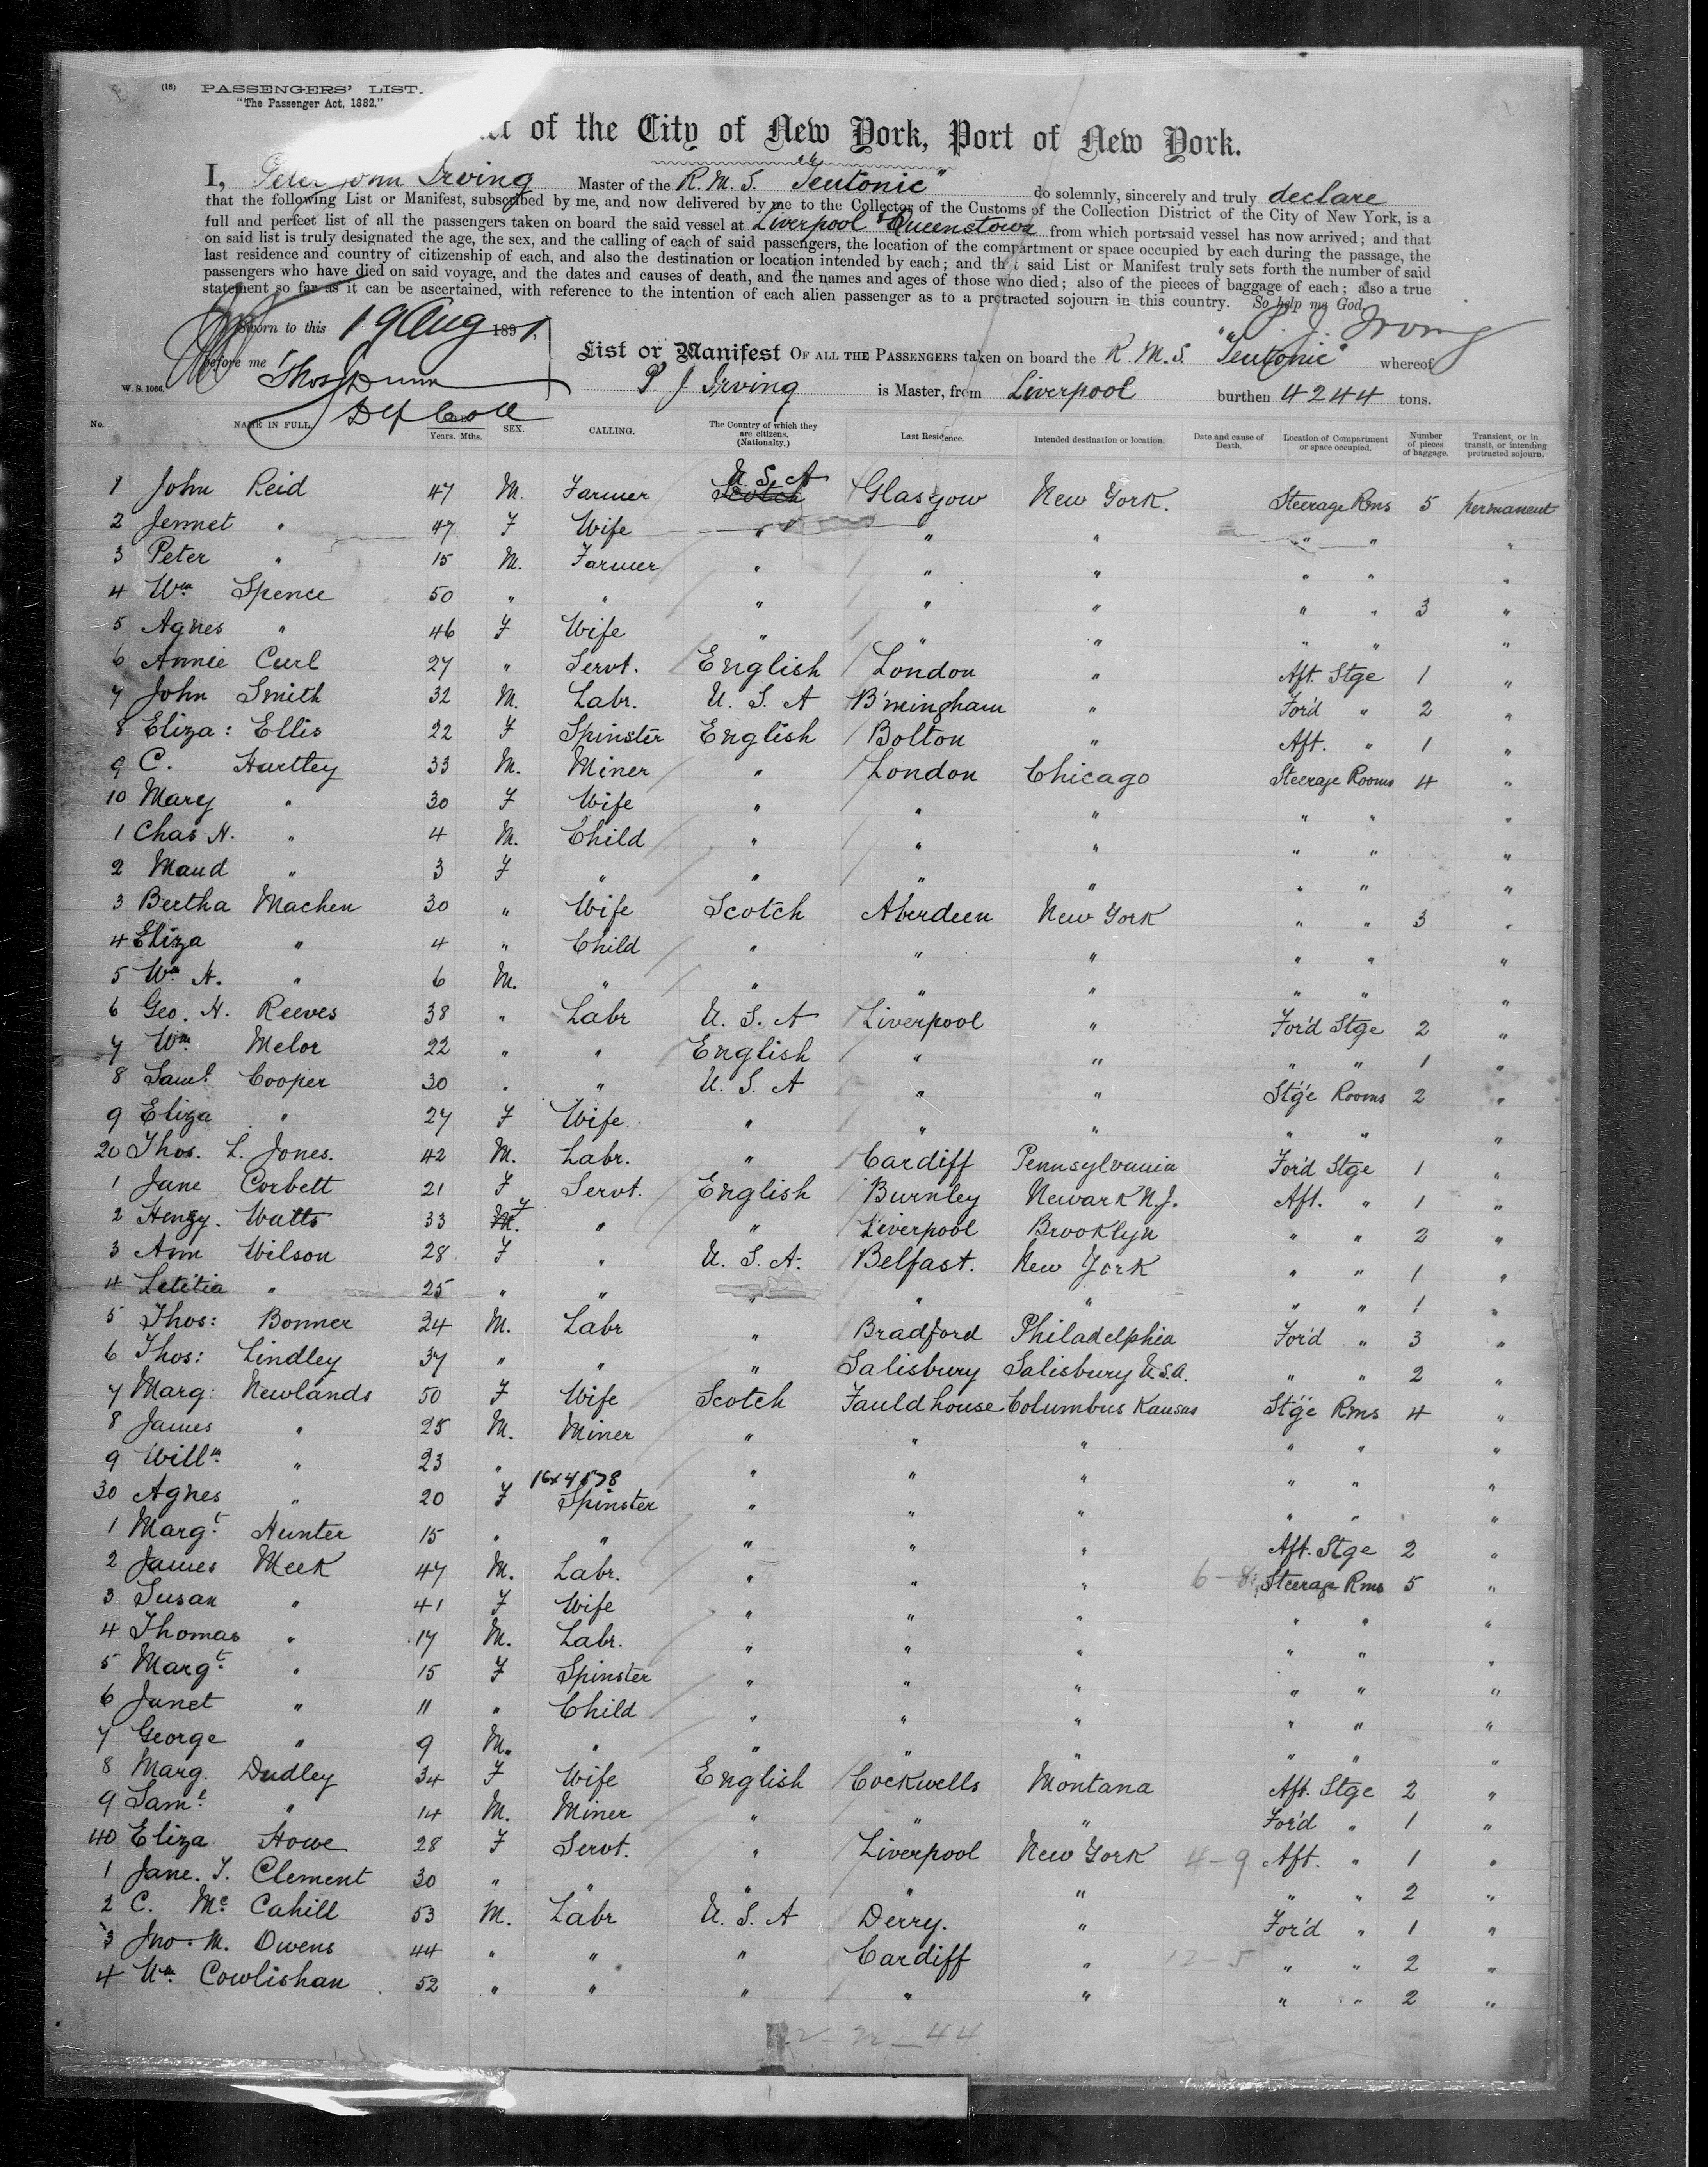 (18) PASSENGERS' LIST.
"The Passenger Act, 1882."
of the City of New York, Port of New York.
I, Peter John Irving Master of the R. M. S. "Teutonic" do solemnly, sincerely and truly declare
that the following List or Manifest, subscribed by me, and now delivered by me to the Collector of the Customs of the Collection District of the City of New York, is a
full and perfect list of all the passengers taken on board the said vessel at Liverpool & Queenstown from which port said vessel has now arrived; and that
on said list is truly designated the age, the sex, and the calling of each of said passengers, the location of the compartment or space occupied by each during the passage, the
last residence and country of citizenship of each, and also the destination or location intended by each; and that said List or Manifest truly sets forth the number of said
passengers who have died on said voyage, and the dates and causes of death, and the names and ages of those who died; also of the pieces of baggage of each; also a true
statement so far as it can be ascertained, with reference to the intention of each alien passenger as to a protracted sojourn in this country. So help me God.
Sworn to this 19 Aug 1891. P. J. Irving
before me Thos Dunn
W. S. 1066. Dep Coll
List or Manifest OF ALL THE PASSENGERS taken on board the R. M. S. "Teutonic" whereof
P J Irving is Master, from Liverpool burthen 4244 tons.
No. NAME IN FULL. Years. Mths. SEX. CALLING. The Country of which they are citizens. (Nationality.) Last Residence. Intended destination or location. Date and cause of Death. Location of Compartment or space occupied. Number of pieces of baggage. Transient, or in transit, or intending protracted sojourn.
1 John Reid 47 M. Farmer Scotch U. S. A Glasgow New York. Steerage Rms 5 permanent
2 Jennet " 47 F Wife " " " " " "
3 Peter " 15 M. Farmer " " " " " "
4 Wm Spence 50 " " " " " " " 3 "
5 Agnes " 46 F Wife " " " " " "
6 Annie Curl 27 " Servt. English London " Aft. Stge 1 "
7 John Smith 32 M. Labr. U. S. A B'mingham " For'd " 2 "
8 Eliza: Ellis 22 F Spinster English Bolton " Aft. " 1 "
9 C. Hartley 33 M. Miner " London Chicago Steerage Rooms 4 "
10 Mary " 30 F Wife " " " " " "
1 Chas H. " 4 M. Child " " " " " "
2 Maud " 3 F " " " " " " "
3 Bertha Machen 30 " Wife Scotch Aberdeen New York " " 3 "
4 Eliza " 4 " Child " " " " " "
5 Wm H. " 6 M. " " " " " " "
6 Geo. H. Reeves 38 " Labr U. S. A Liverpool " For'd Stge 2 "
7 Wm Melor 22 " " English " " " " 1 "
8 Saml. Cooper 30 " " U. S. A " " St'ge Rooms 2 "
9 Eliza " 27 F Wife " " " " " "
20 Thos. L. Jones. 42 M. Labr. " Cardiff Pennsylvania For'd Stge 1 "
1 Jane Corbett 21 F Servt. English Burnley Newark N.J. Aft. " 1 "
2 Henry. Watts 33 M. F " " Liverpool Brooklyn " " 2 "
3 Ann Wilson 28 F " U. S. A. Belfast. New York " " 1 "
4 Letitia " 25 " " " " " " " 1 "
5 Thos: Bonner 24 M. Labr " Bradford Philadelphia For'd " 3 "
6 Thos: Lindley 37 " " " Salisbury Salisbury U.S.A. " " 2 "
7 Marg: Newlands 50 F Wife Scotch Fauldhouse Columbus Kansas St'ge Rms 4 "
8 James " 25 M. Miner " " " " " "
9 Willm " 23 " " " " " " "
30 Agnes " 20 F Spinster " " " " " "
1 Margt. Hunter 15 " " " " " Aft. Stge 2 "
2 James Meek 47 M. Labr. " " " 6-8 Steerage Rms 5 "
3 Susan " 41 F Wife " " " " " "
4 Thomas " 17 M. Labr. " " " " " "
5 Margt. " 15 F Spinster " " " " " "
6 Janet " 11 " Child " " " " " "
7 George " 9 M. " " " " " " "
8 Marg. Dudley 34 F Wife English Cockwells Montana Aft. Stge 2 "
9 Saml " 14 M. Miner " " " For'd " 1 "
40 Eliza Howe 28 F Servt. " Liverpool New York 4-9 Aft. " 1 "
1 Jane. T. Clement 30 " " " " " " " 2 "
2 C. Mc Cahill 53 M. Labr U. S. A Derry. " For'd " 1 "
3 Jno. M. Owens 44 " " " Cardiff " 12-5 " " 2 "
4 Wm. Cowlishan 52 " " " " " " " 2 "